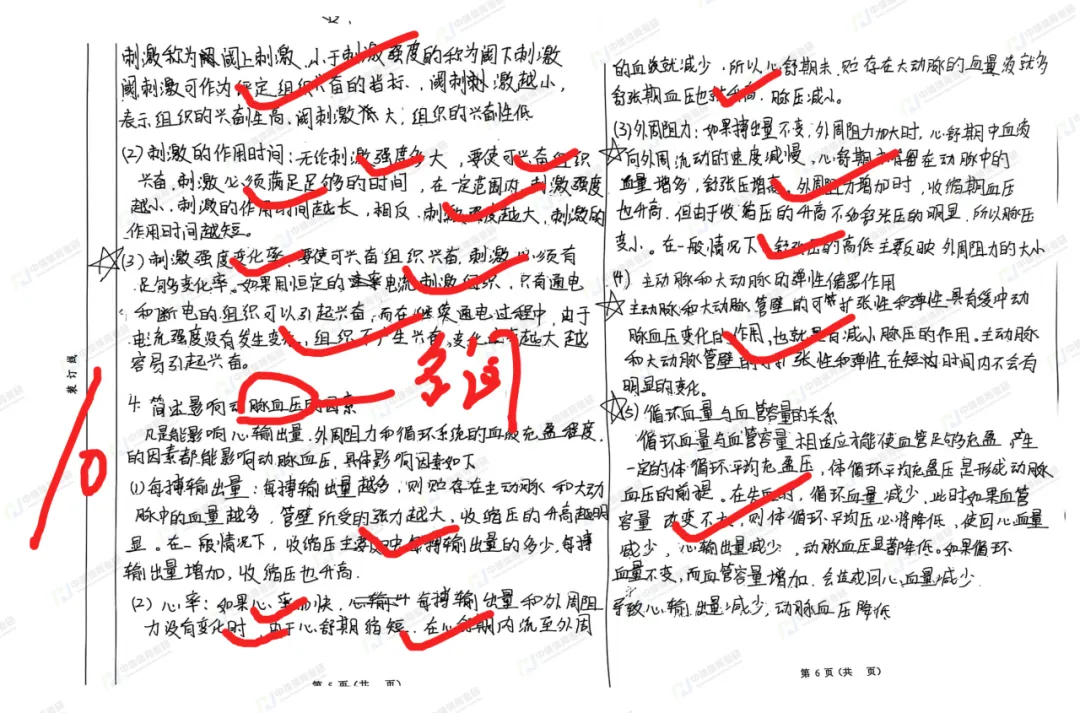 刺激称为阈阈上刺激,小于刺激强度的称为阈下刺激
阈刺激可作为评定组织兴奋的指标,阈刺激越小,
表示组织的兴奋性高,阈刺激低大,组织的兴奋性低
(2)刺激的作用时间:无论刺激强度多大,要使可兴奋组织
兴奋,刺激必须满足足够的时间,在一定范围内,刺激强度
越小,刺激的作用时间越长,相反,刺激强度越大,刺激的
作用时间越短。
(3)刺激强度变化率,要使可兴奋组织兴奋,刺激必须有
足够变化率。如果用恒定的电流刺激组织,只有通电
和断电的组织可以引起兴奋,而在继续通电过程中,由于
电流强度没有发生变化,组织不产生兴奋。变化越大越
容易引起兴奋。
名词
4.简述影响动脉血压的因素
凡是能影响心输出量,外周阻力和循环系统的血液充盈程度,
的因素都能影响动脉血压,具体影响因素如下
(1)每搏输出量:每搏输出量越多,则贮存在主动脉和大动
脉中的血量越多,管壁所受的张力越大,收缩压的升高越明
显。在一般情况下,收缩压主要反映每搏输出量的多少,每搏
输出量增加,收缩压也升高.
(2)心率:如果心率加快,心输 每搏输出量和外周阻
力没有变化时,由于心舒期缩短,在心舒期内流至外周
10
装订线
第 5 页(共 页)
的血液就减少,所以心舒期末,贮存在大动脉的血量液就多
舒张期血压也就升高,脉压减小。
(3)外周阻力:如果搏出量不变,外周阻力加大时,心舒期中血液
向外周流动的速度减慢,心舒期末存留在动脉中的
血量增多,舒张压增高。外周阻力增加时,收缩期血压
也升高,但由于收缩压的升高不如舒张压的明显,所以脉压
变小。在一般情况下,舒张压的高低主要反映外周阻力的大小
(4)主动脉和大动脉的弹性储器作用
主动脉和大动脉管壁的可扩张性和弹性具有缓冲动
脉血压变化的作用,也就是有减小脉压的作用。主动脉
和大动脉管壁的可扩张性和弹性在短的时间内不会有
明显的变化。
(5)循环血量与血管容量的关系
循环血量与血管容量相适应才能使血管足够充盈,产生
一定的体循环平均充盈压,体循环平均充盈压是形成动脉
血压的前提。在失血时,循环血量减少,此时如果血管
容量改变不大,则体循环平均压必将降低,使回心血量
减少,心输出量减少,动脉血压显著降低。如果循环
血量不变,而血管容量增加,会造成回心血量减少.
导致心输出量减少,动脉血压降低
第 6 页(共 页)